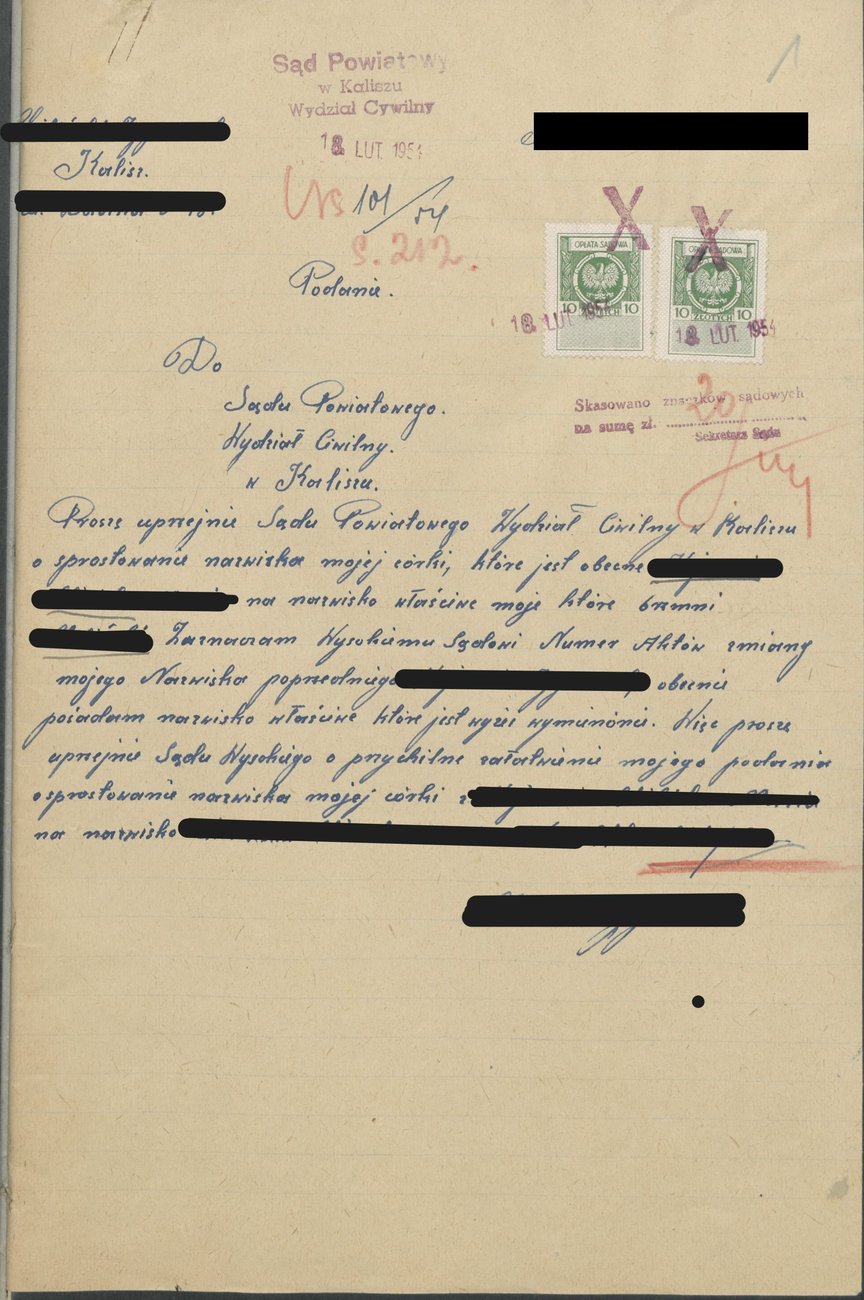 Sąd Powiatowy
w Kaliszu
Wydział Cywilny
18 LUT. 1954
1
Kalisz.
Ns 101/54
S. 212.
OPŁATA SĄDOWA
10 ZŁOTYCH 10
18 LUT. 1954
OPŁATA SĄDOWA
10 ZŁOTYCH 10
18 LUT. 1954
Podanie.
Skasowano znaczków sądowych
na sumę zł. 20
Sekretarz Sądu
Do
Sądu Powiatowego.
Wydział Ciwilny.
w Kaliszu.
Proszę uprzejmie Sądu Powiatowego Wydział Ciwilny w Kaliszu
o sprostowanie nazwiska mojej córki, które jest obecne
na nazwisko właściwe moje które brzmni
Zaznaczam Wysokiemu Sądowi Numer Aktów zmiany
mojego Nazwiska poprzedniego obecnie
pośadam nazwisko właściwe które jest wyżei wyminónie. Więc proszę
uprzejmie Sądu Wysokiego o przychilne załatwienie mojego podania
o sprostowanie nazwiska mojej córki z
na nazwisko